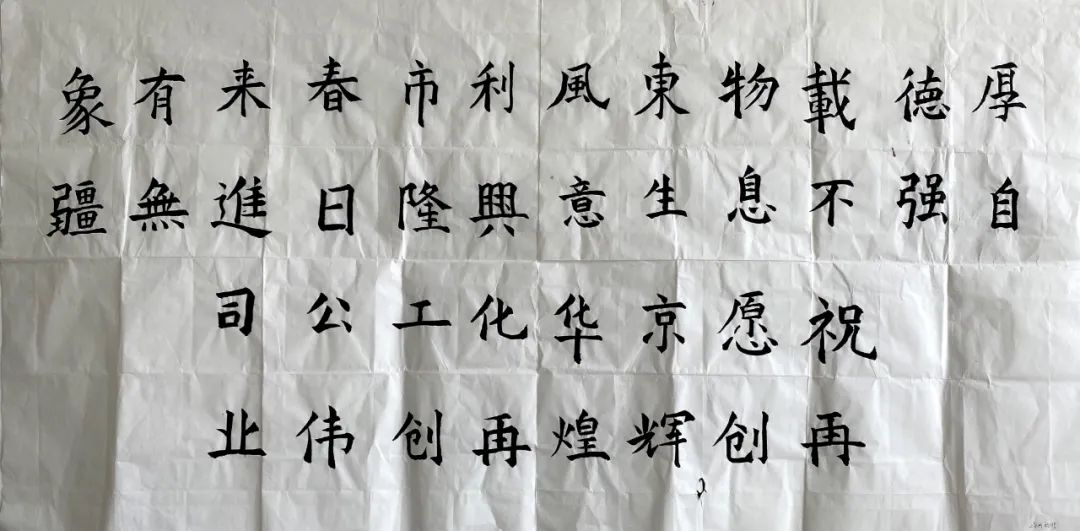 厚德載物東風利市春来有象
自强不息生意興隆日進無疆
祝愿京华化工公司
再创辉煌再创伟业